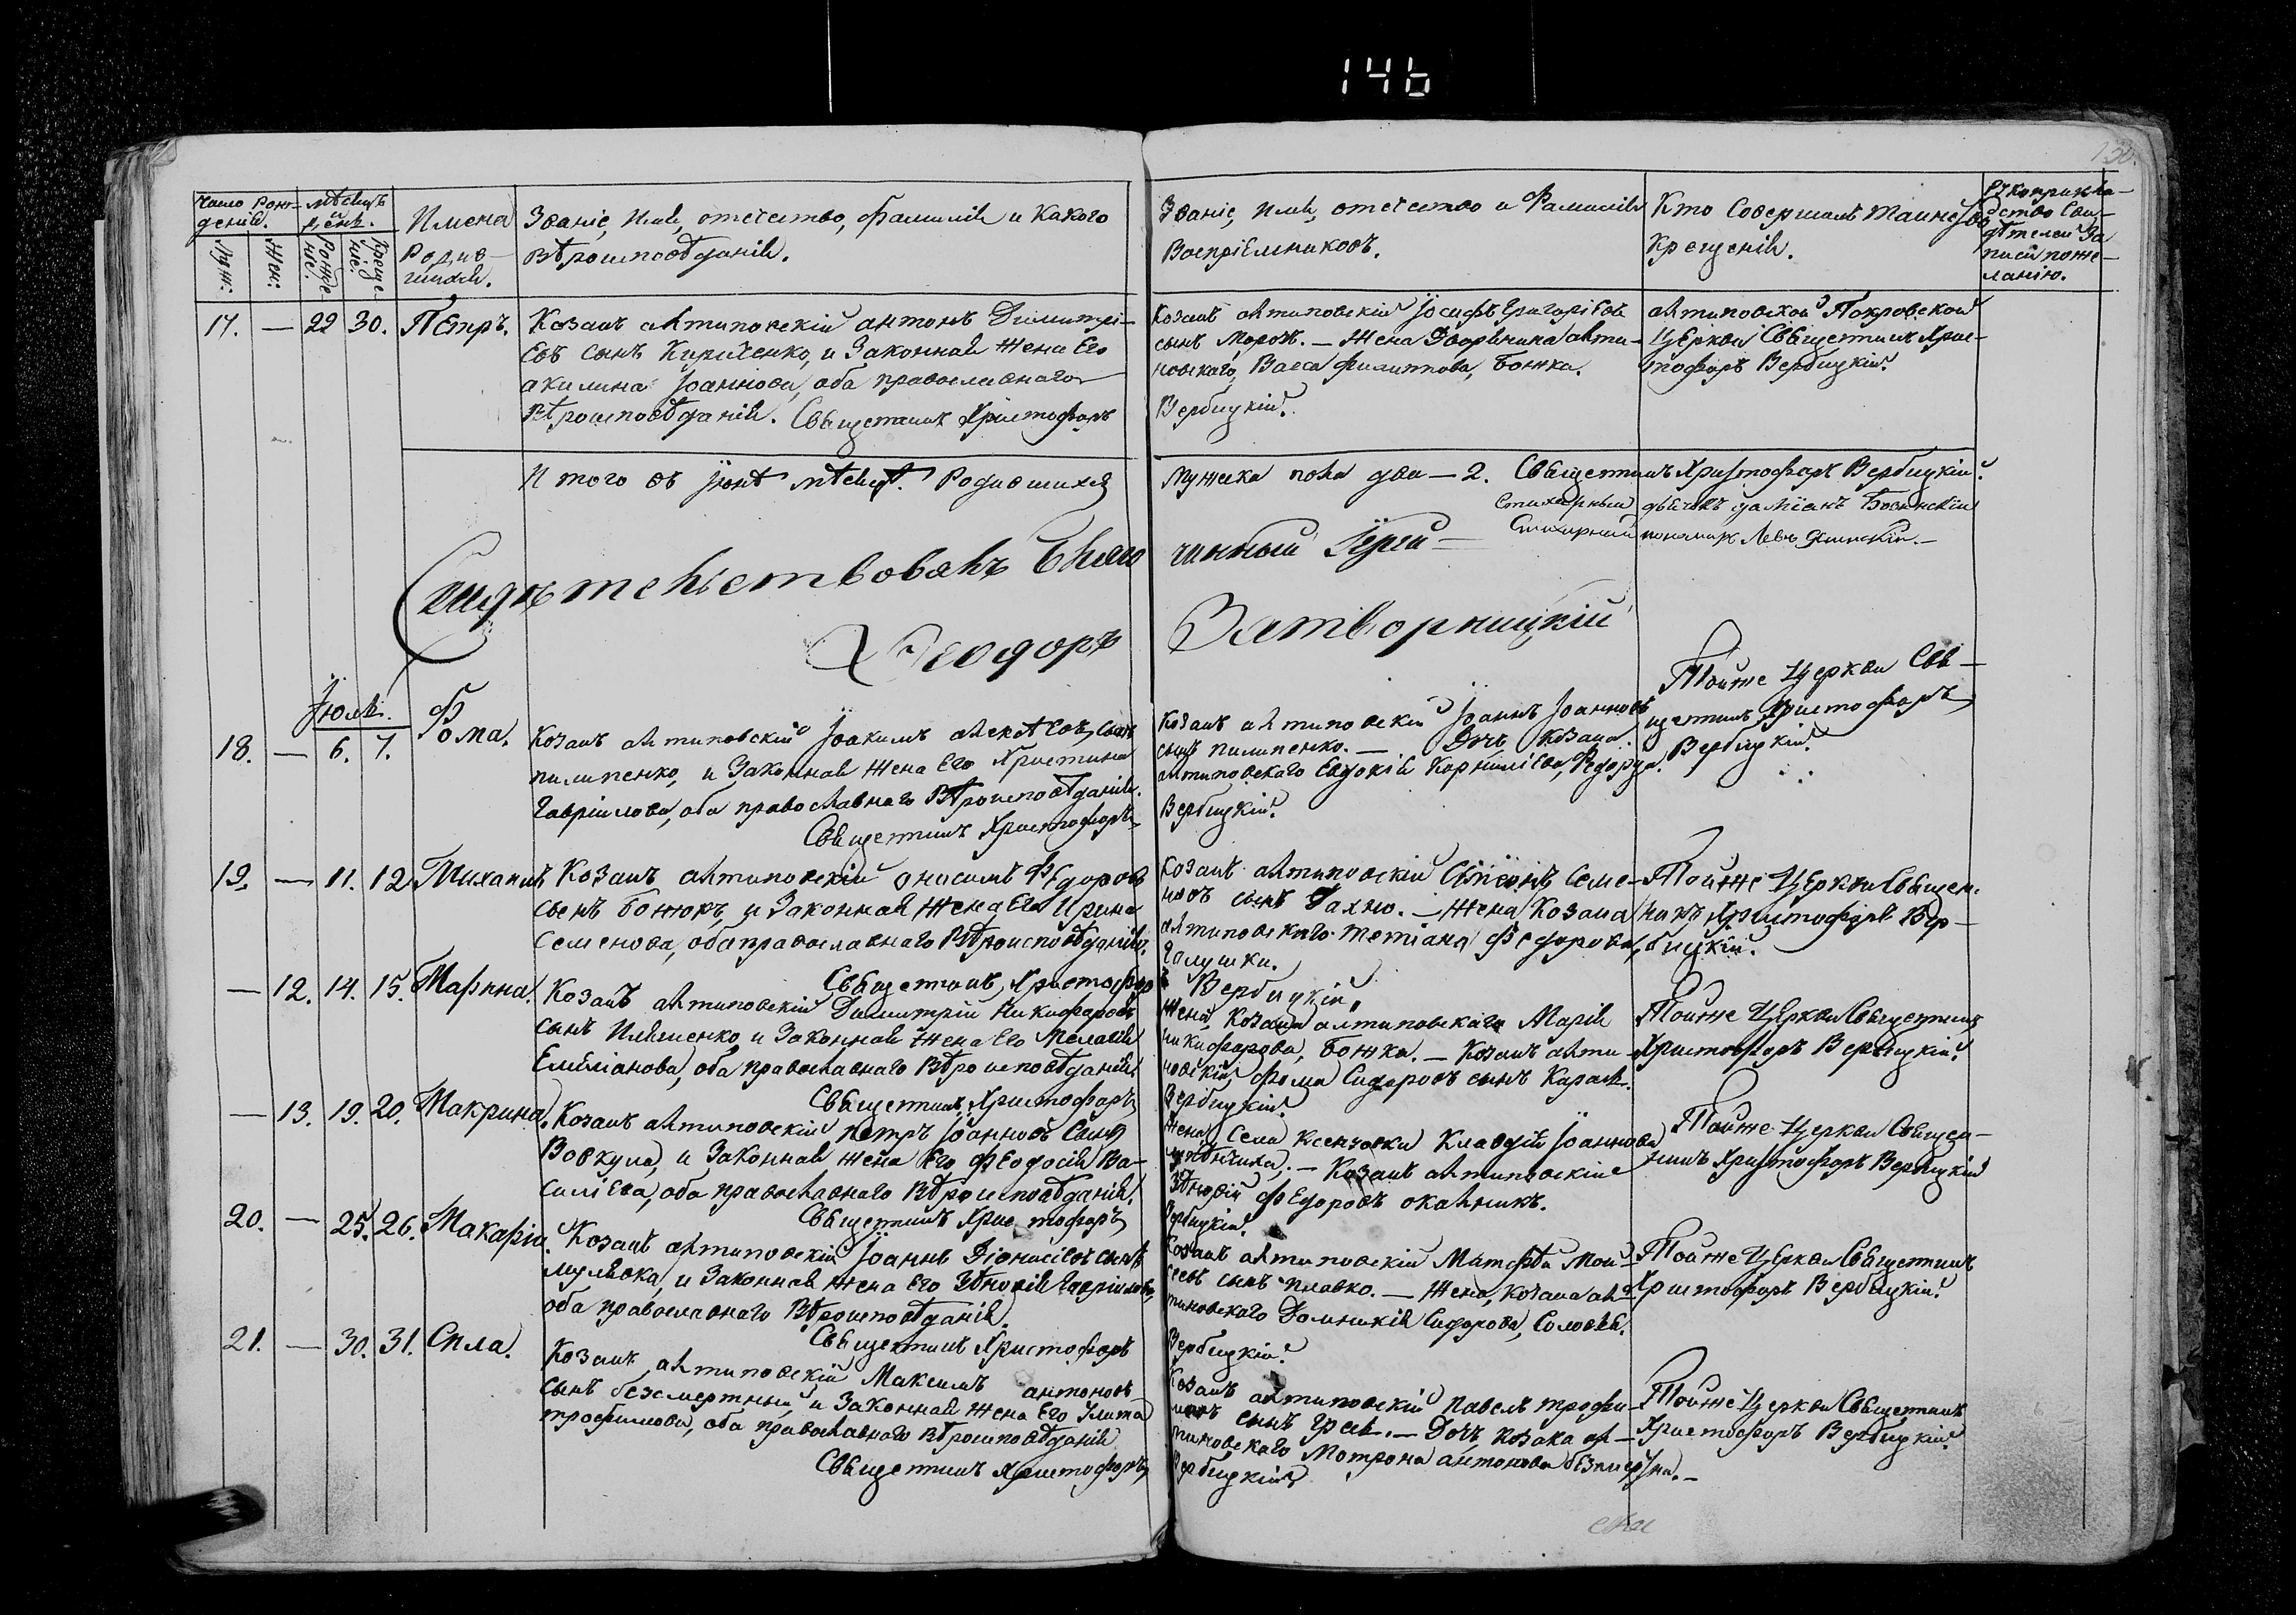 146
130.
Число рож-
деній.
Мѣсяцъ
и день.
Муж:
Жен:
Рожде
ніе.
Креще
ніе.
Имена
Родив-
шихся.
Званіе, Имя, отчество, фамилія и какого
вѣроисповѣданія.
Званіе, Имя, отчество и Фамилія
Воспріемниковъ.
Кто Совершалъ таинство
Крещенія.
Рукоприкла-
дство Сви-
дѣтелей За
писи поже-
ланію.
17. — 29 30. Петръ.
Козакъ антиповскій антонъ Димитрі-
евъ сынъ Кириченко, и Законная жена Его
акилина Іоаннова, оба православнаго
Вѣроисповѣданія. Священникъ Христофоръ
Козакъ антиповскій Іосифъ Григоріевъ
сынъ Морозъ. — Жена Дворѣнина анти-
повскаго, Васса Филиппова, Божка.
Вербицкій.
антиповской Покровской
Церкви Священникъ Хрис-
тофоръ Вербицкій.
Итого въ Іюнѣ мѣсяцѣ. Родившихся
мужеска пола два — 2. Священникъ Христофоръ Вербицкій.
Стихарный дьячокъ даміанъ
Стихарный пономарь Левъ
Свидѣтельствовалъ Благо
чинный Іерей —
Феодоръ
Затворницкій
Іюль.
18. — 6. 7. Фома.
Козакъ антиповскій Іоакимъ алексѣевъ, сынъ
пилипенко, и Законная жена Его Христина
Гавріилова, оба православнаго Вѣроисповѣданія.
Священникъ Христофоръ
Козакъ антиповскій Іоаннъ Іоанновъ
сынъ пилипенко. — Дочь козака
антиповскаго Евдокія Корниліева,
Вербицкій.
Тойже Церкви Свя-
щенникъ Христофоръ
Вербицкій.
19. — 11. 12 Михаилъ
Козакъ антиповскій онисимъ Федоровъ
сынъ Божокъ, и Законная жена Его Ирина
Семенова, оба православнаго Вѣроисповѣданія.
Священникъ, Христофор
Козакъ антиповскій Симеонъ Семе-
новъ сынъ Махно. — Жена Козака
антиповскаго Тетіана Федорова,
Галушки.
Вербицкій.
Тойже Церкви Священ.
никъ Христофоръ Вер-
бицкій.
— 12. 14. 15. Марина.
Козакъ антиповскій Димитрій Никифоровъ
сынъ Ильшенко, и Законная жена Его Мелания
Емиліанова, оба православнаго Вѣроисповѣданія.
Священникъ, Христофоръ
Жена Козака антиповскаго Марія
Никифорова, Божка. — Козакъ анти-
повскій, Фома Сидоровъ сынъ
Вербицкій.
Тойже Церкви Священникъ
Христофоръ Вербицкій.
— 13. 19. 20. Макрина.
Козакъ антиповскій Петръ Іоанновъ Сынъ
Вовкула, и Законная жена Его Феодосія Ва-
силіева, оба православнаго Вѣроисповѣданія.
Священникъ Христофоръ
Жена Села Ксензовки Клавдія Іоаннова
— Козакъ антиповскій
Зѣновій Федоровъ
Вербицкій.
Тойже Церкви Священ-
никъ Христофоръ Вербицкій
20. — 25. 26. Макарій.
Козакъ антиповскій Іоаннъ Діонисіевъ сынъ
мулявка, и Законная жена Его Зѣновія Гавріилова,
оба православнаго Вѣроисповѣданія.
Священникъ Христофоръ
Козакъ антиповскій Матфѣй Мой-
сеевъ сынъ Плавко. — Жена, Козака ан-
типовскаго Домникія Сидорова, Соловья.
Вербицкій.
Тойже Церкви Священникъ
Христофоръ Вербицкій.
21. — 30. 31. Сила.
Козакъ антиповскій Максимъ антоновъ
сынъ безсмертный, и Законная жена Его Улита
трофимова, оба православнаго Вѣроисповѣданія
Священникъ Христофоръ
Козакъ антиповскій павелъ трофи-
мовъ сынъ — Дочь козака ан-
типовскаго Мотрона антонова безсмертна. —
Вербицкій
Тойже Церкви Священникъ
Христофоръ Вербицкій.